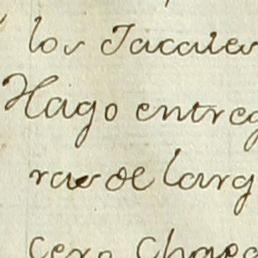 los Jacales
Hago entreg
ras de larg
cero Chapa